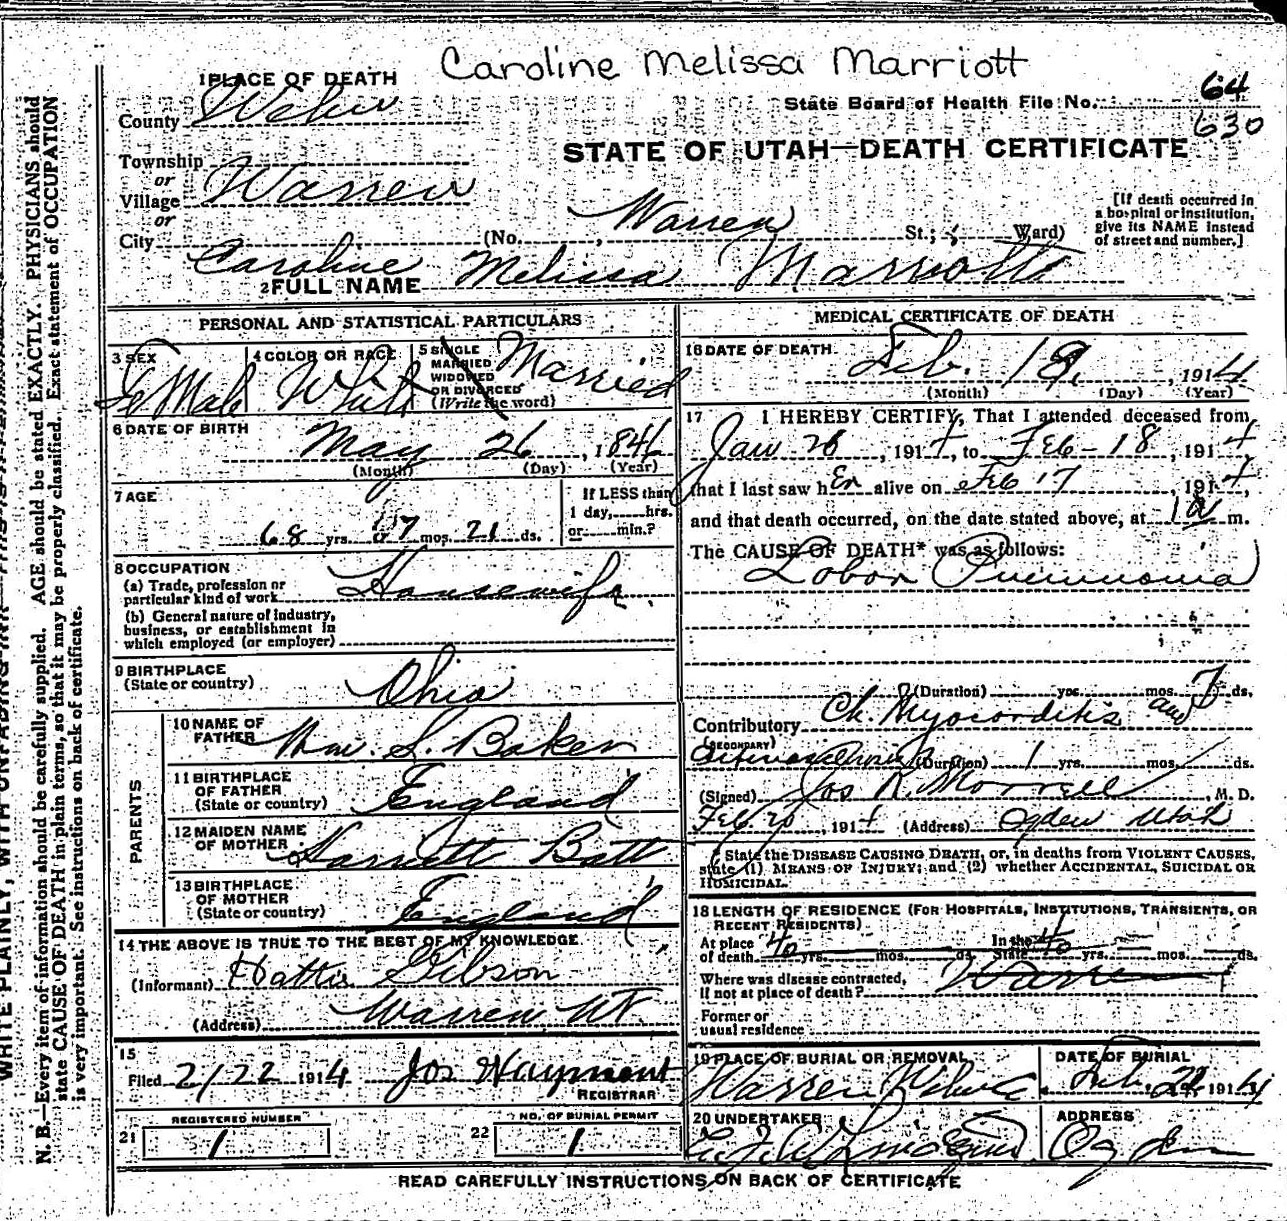 Caroline Melissa Marriott
1 PLACE OF DEATH
County Weber
State Board of Health File No. 64
630
STATE OF UTAH—DEATH CERTIFICATE
Township
or
Village Warren
or
City (No. Warren St.; Ward)
[If death occurred in a hospital or institution, give its NAME instead of street and number.]
2 FULL NAME Caroline Melissa Marriott
PERSONAL AND STATISTICAL PARTICULARS
3 SEX FeMale
4 COLOR OR RACE White
5 SINGLE MARRIED WIDOWED OR DIVORCED (Write the word) Married
6 DATE OF BIRTH
May 26, 1846
(Month) (Day) (Year)
7 AGE
68 yrs. 7 mos. 21 ds.
If LESS than 1 day, hrs. or min.?
8 OCCUPATION
(a) Trade, profession or particular kind of work Housewife.
(b) General nature of industry, business, or establishment in which employed (or employer)
9 BIRTHPLACE
(State or country) Ohio
PARENTS
10 NAME OF FATHER Wm. S. Baker
11 BIRTHPLACE OF FATHER (State or country) England
12 MAIDEN NAME OF MOTHER Harriett Batt
13 BIRTHPLACE OF MOTHER (State or country) England
14 THE ABOVE IS TRUE TO THE BEST OF MY KNOWLEDGE
(Informant) Hattie Gibson
(Address) Warren UT
15
Filed 2/22 1914 Jos Wayment
REGISTRAR
REGISTERED NUMBER
21 1
NO. OF BURIAL PERMIT
22 1
MEDICAL CERTIFICATE OF DEATH
16 DATE OF DEATH
Feb. 18, 1914
(Month) (Day) (Year)
17 I HEREBY CERTIFY, That I attended deceased from
Jan 26, 1914, to Feb-18, 1914,
that I last saw her alive on Feb 17, 1914,
and that death occurred, on the date stated above, at 1 a m.
The CAUSE OF DEATH* was as follows:
Lobar Pneumonia
(Duration) yrs. mos. 7 ds.
Contributory Ch. Myocarditis and
(SECONDARY)
(Duration) 1 yrs. mos. ds.
(Signed) Jos R. Morrell, M. D.
Feb 20, 1914 (Address) Ogden Utah
State the DISEASE CAUSING DEATH, or, in deaths from VIOLENT CAUSES, state (1) MEANS OF INJURY; and (2) whether ACCIDENTAL, SUICIDAL OR HOMICIDAL.
18 LENGTH OF RESIDENCE (FOR HOSPITALS, INSTITUTIONS, TRANSIENTS, OR RECENT RESIDENTS)
At place of death 40 yrs. mos. ds. In the State 40 yrs. mos. ds.
Where was disease contracted, if not at place of death? Warren
Former or usual residence
19 PLACE OF BURIAL OR REMOVAL
Warren
DATE OF BURIAL
Feb. 22 1914
20 UNDERTAKER
ADDRESS
Ogden
READ CAREFULLY INSTRUCTIONS ON BACK OF CERTIFICATE
WRITE PLAINLY, WITH UNFADING INK
N. B.—Every item of information should be carefully supplied. AGE should be stated EXACTLY. PHYSICIANS should
state CAUSE OF DEATH in plain terms, so that it may be properly classified. Exact statement of OCCUPATION
is very important. See instructions on back of certificate.